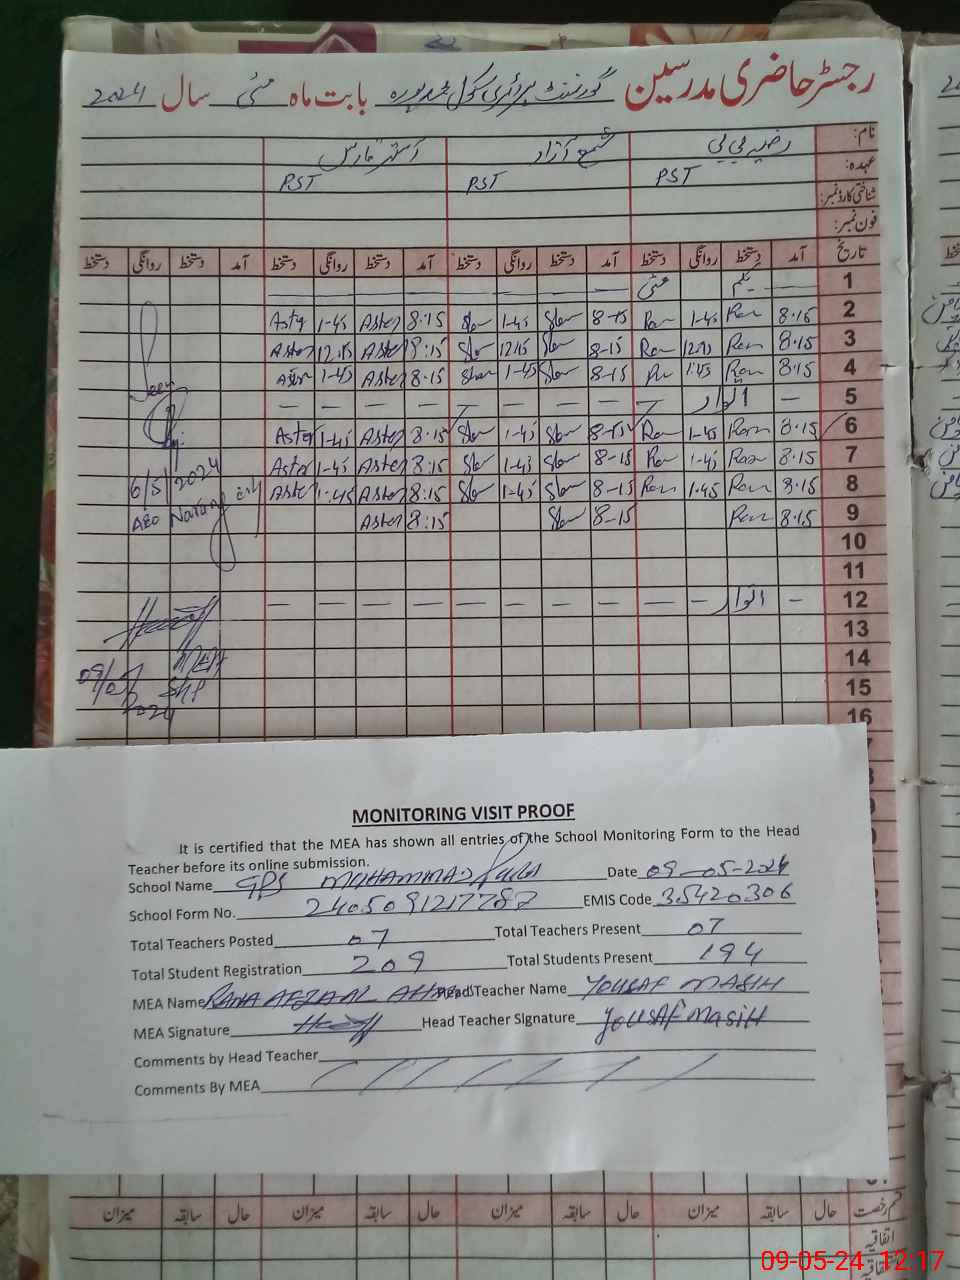 رجسٹر حاضری مدرسین گورنمنٹ پرائمری سکول محمد پورہ بابت ماہ مئی سال 2024
نام: رضیہ بی بی شمع آزاد
عہدہ: PST PST PST
شناختی کارڈ نمبر:
فون نمبر:
تاریخ آمد دستخط روانگی دستخط آمد دستخط روانگی دستخط آمد دستخط روانگی دستخط آمد دستخط روانگی دستخط
1 یکم مئی
2 8:15 Ran 1-45 Ran 8-15 1-45 8:15 Aster 1-45 Aster
3 8:15 Ran 12:15 Ran 8-15 12:15 8:15 Aster 12:15 Aster
4 8:15 Ran 1:45 Ran 8-15 1-45 8:15 Aster 1-45 Aster
5 اتوار
6 8:15 Ran 1-45 Ran 8-15 1-45 8:15 Aster 1-45 Aster
7 8:15 Ran 1-45 Ran 8-15 1-45 8:15 Aster 1-45 Aster
8 8:15 Ran 1.45 Ran 8-15 1-45 8:15 Aster 1.45 Aster
9 8:15 Ran 8-15 8:15 Aster
10
11
12 اتوار
13
14
15
16
Seen
6/5/2024
AEO Narang
09/05/2024
MEA
SKP
MONITORING VISIT PROOF
It is certified that the MEA has shown all entries of the School Monitoring Form to the Head
Teacher before its online submission.
School Name GPS MUHAMMAD Pura Date 09-05-2024
School Form No. 2405091217787 EMIS Code 35420306
Total Teachers Posted 07 Total Teachers Present 07
Total Student Registration 209 Total Students Present 194
MEA Name RANA AFZAAL AHMAD Head Teacher Name YOUSAF MASIH
MEA Signature Head Teacher Signature YOUSAF MASIH
Comments by Head Teacher
Comments By MEA
قسم رخصت حال سابقہ میزان حال سابقہ میزان حال سابقہ میزان حال سابقہ میزان
اتفاقیہ
09-05-24 12:17